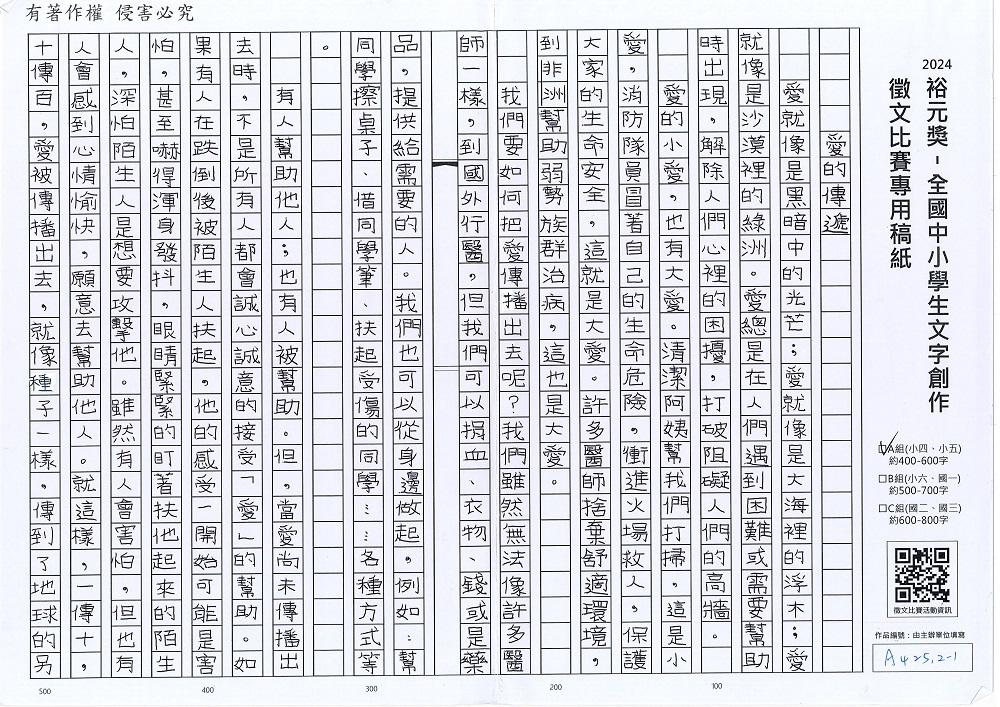 有著作權 侵害必究
2024
裕元獎-全國中小學生文字創作
徵文比賽專用稿紙
☑A組(小四、小五)
約400-600字
□B組(小六、國一)
約500-700字
□C組(國二、國三)
約600-800字
徵文比賽活動資訊
作品編號：由主辦單位填寫
A425,2-1
愛的傳遞
愛就像是黑暗中的光芒；愛就像是大海裡的浮木；愛
就像是沙漠裡的綠洲。愛總是在人們遇到困難或需要幫助
時出現，解除人們心裡的困擾，打破阻礙人們的高牆。
愛的小愛，也有大愛。清潔阿姨幫我們打掃，這是小
愛，消防隊員冒著自己的生命危險，衝進火場救人，保護
大家的生命安全，這就是大愛。許多醫師捨棄舒適環境，
到非洲幫助弱勢族群治病，這也是大愛。
我們要如何把愛傳播出去呢？我們雖然無法像許多醫
師一樣，到國外行醫，但我們可以捐血、衣物、錢或是藥
品，提供給需要的人。我們也可以從身邊做起，例如：幫
同學擦桌子、借同學筆、扶起受傷的同學……各種方式等
。
有人幫助他人；也有人被幫助。但，當愛尚未傳播出
去時，不是所有人都會誠心誠意的接受「愛」的幫助。如
果有人在跌倒後被陌生人扶起，他的感受一開始可能是害
怕，甚至嚇得渾身發抖，眼睛緊緊的盯著扶他起來的陌生
人，深怕陌生人是想要攻擊他。雖然有人會害怕，但也有
人會感到心情愉快，願意去幫助他人。就這樣，一傳十，
十傳百，愛被傳播出去，就像種子一樣，傳到了地球的另
100
200
300
400
500